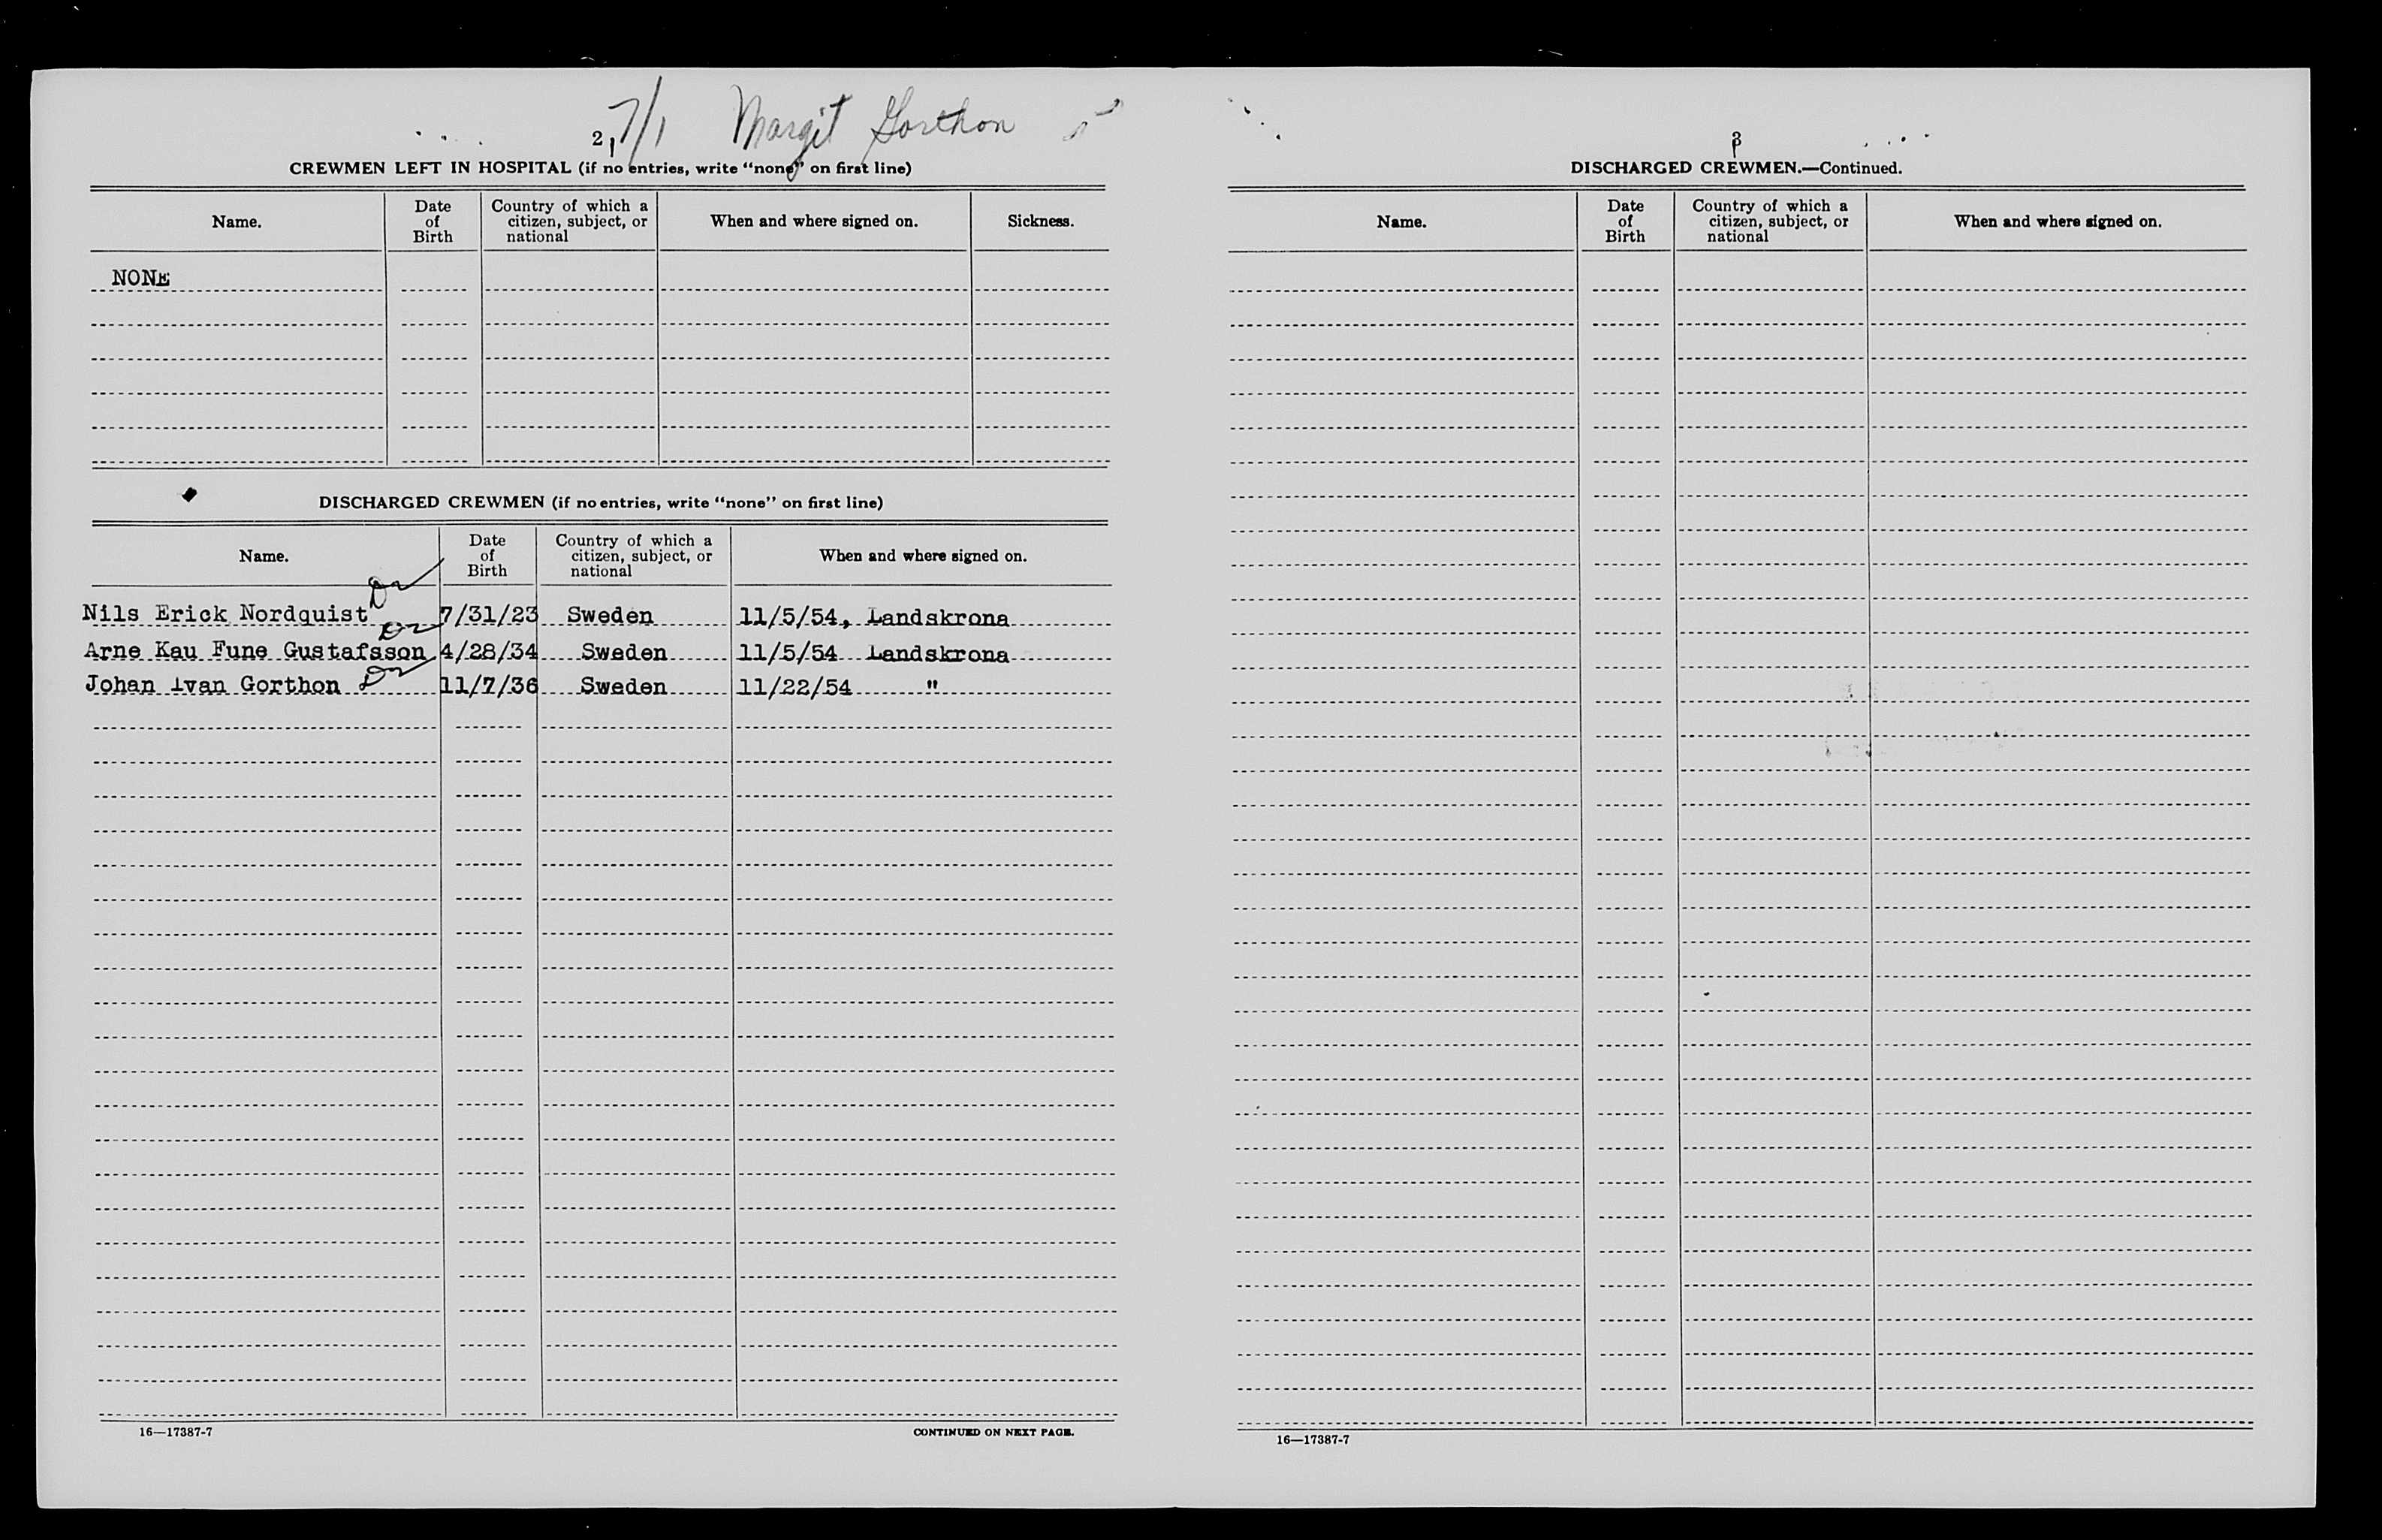 7/1 Margit Gorthon
2
CREWMEN LEFT IN HOSPITAL (if no entries, write “none” on first line)
Name. Date of Birth Country of which a citizen, subject, or national When and where signed on. Sickness.
NONE
DISCHARGED CREWMEN (if no entries, write “none” on first line)
Name. Date of Birth Country of which a citizen, subject, or national When and where signed on.
Nils Erick Nordquist 7/31/23 Sweden 11/5/54, Landskrona
Arne Kau Fune Gustafsson 4/28/34 Sweden 11/5/54 Landskrona
Johan Ivan Gorthon 11/7/36 Sweden 11/22/54 "
16—17387-7 CONTINUED ON NEXT PAGE.
3
DISCHARGED CREWMEN.—Continued.
Name. Date of Birth Country of which a citizen, subject, or national When and where signed on.
16—17387-7